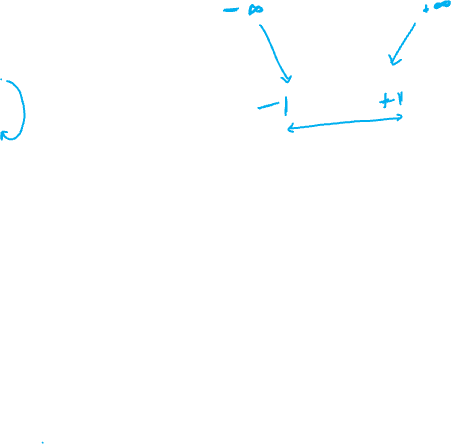 -∞ +∞
-1 +1